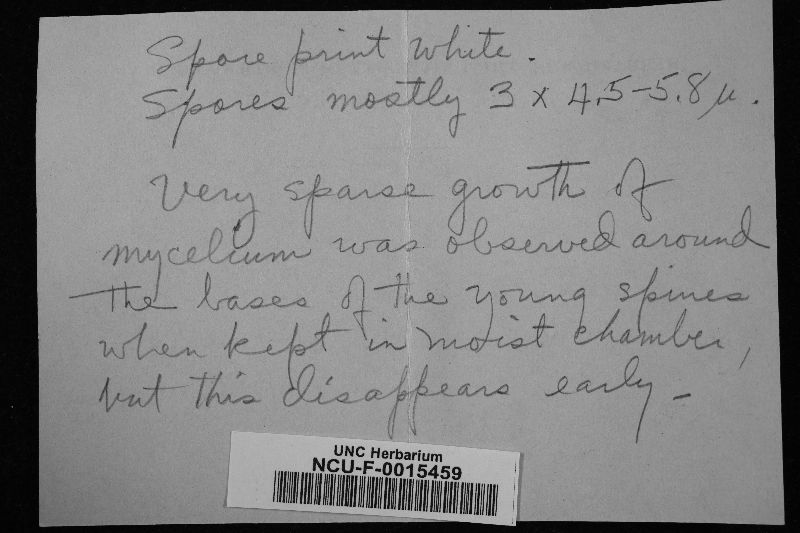 Spore print white.
Spores mostly 3 x 4.5-5.8 µ.
Very sparse growth of
mycelium was observed around
the bases of the young spines
when kept in moist chamber,
but this disappears early -
UNC Herbarium
NCU-F-0015459